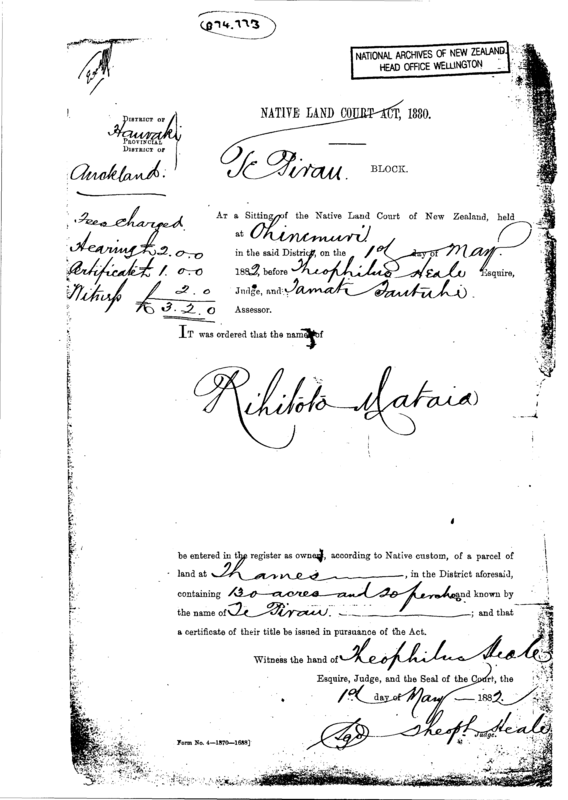 C74.773
NATIONAL ARCHIVES OF NEW ZEALAND
HEAD OFFICE WELLINGTON
NATIVE LAND COURT ACT, 1880.
DISTRICT OF
Hauraki
PROVINCIAL
DISTRICT OF
Auckland.
Te Pirau. BLOCK.
Fees charged
Hearing £ 2.0.0
Certificate £ 1.0.0
2.0
£ 3.2.0
AT a Sitting of the Native Land Court of New Zealand, held
at Ohinemuri
in the said District, on the 1st day of May
1882, before Theophilus Heale Esquire,
Judge, and Tamati Tautuhi.
Assessor.
IT was ordered that the name of
Rihitoto Mataia
be entered in the register as owner, according to Native custom, of a parcel of
land at Thames, in the District aforesaid,
containing 130 acres and 20 perches and known by
the name of Te Pirau. ; and that
a certificate of their title be issued in pursuance of the Act.
Witness the hand of Theophilus Heale
Esquire, Judge, and the Seal of the Court, the
1st day of May 1882.
Sgd Theoph. Heale
Judge.
Form No. 4—1870—1688]